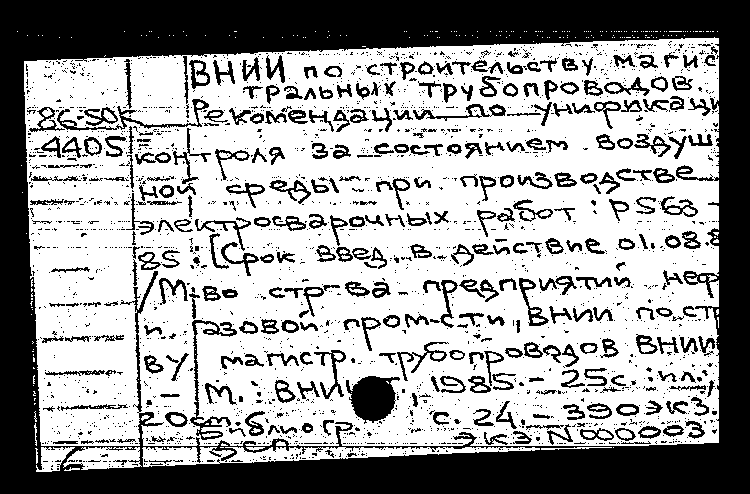 ВНИИ по строительству магис
тральных трубопроводов.
86-50К Рекомендации по унификаци
4405 контроля за состоянием воздуш
ной среды при производстве
электросварочных работ : Р 568 -
85 : [Срок введ. в действие 01.08.8
/М-во стр-ва предприятий неф
и газовой пром-сти, ВНИИ по стр
ву магистр. трубопроводов ВНИИ
. - М. : , 1985. - 25с. : ил.;
20см. Библиогр. с. 24. - 390 экз.
экз. N 000003.